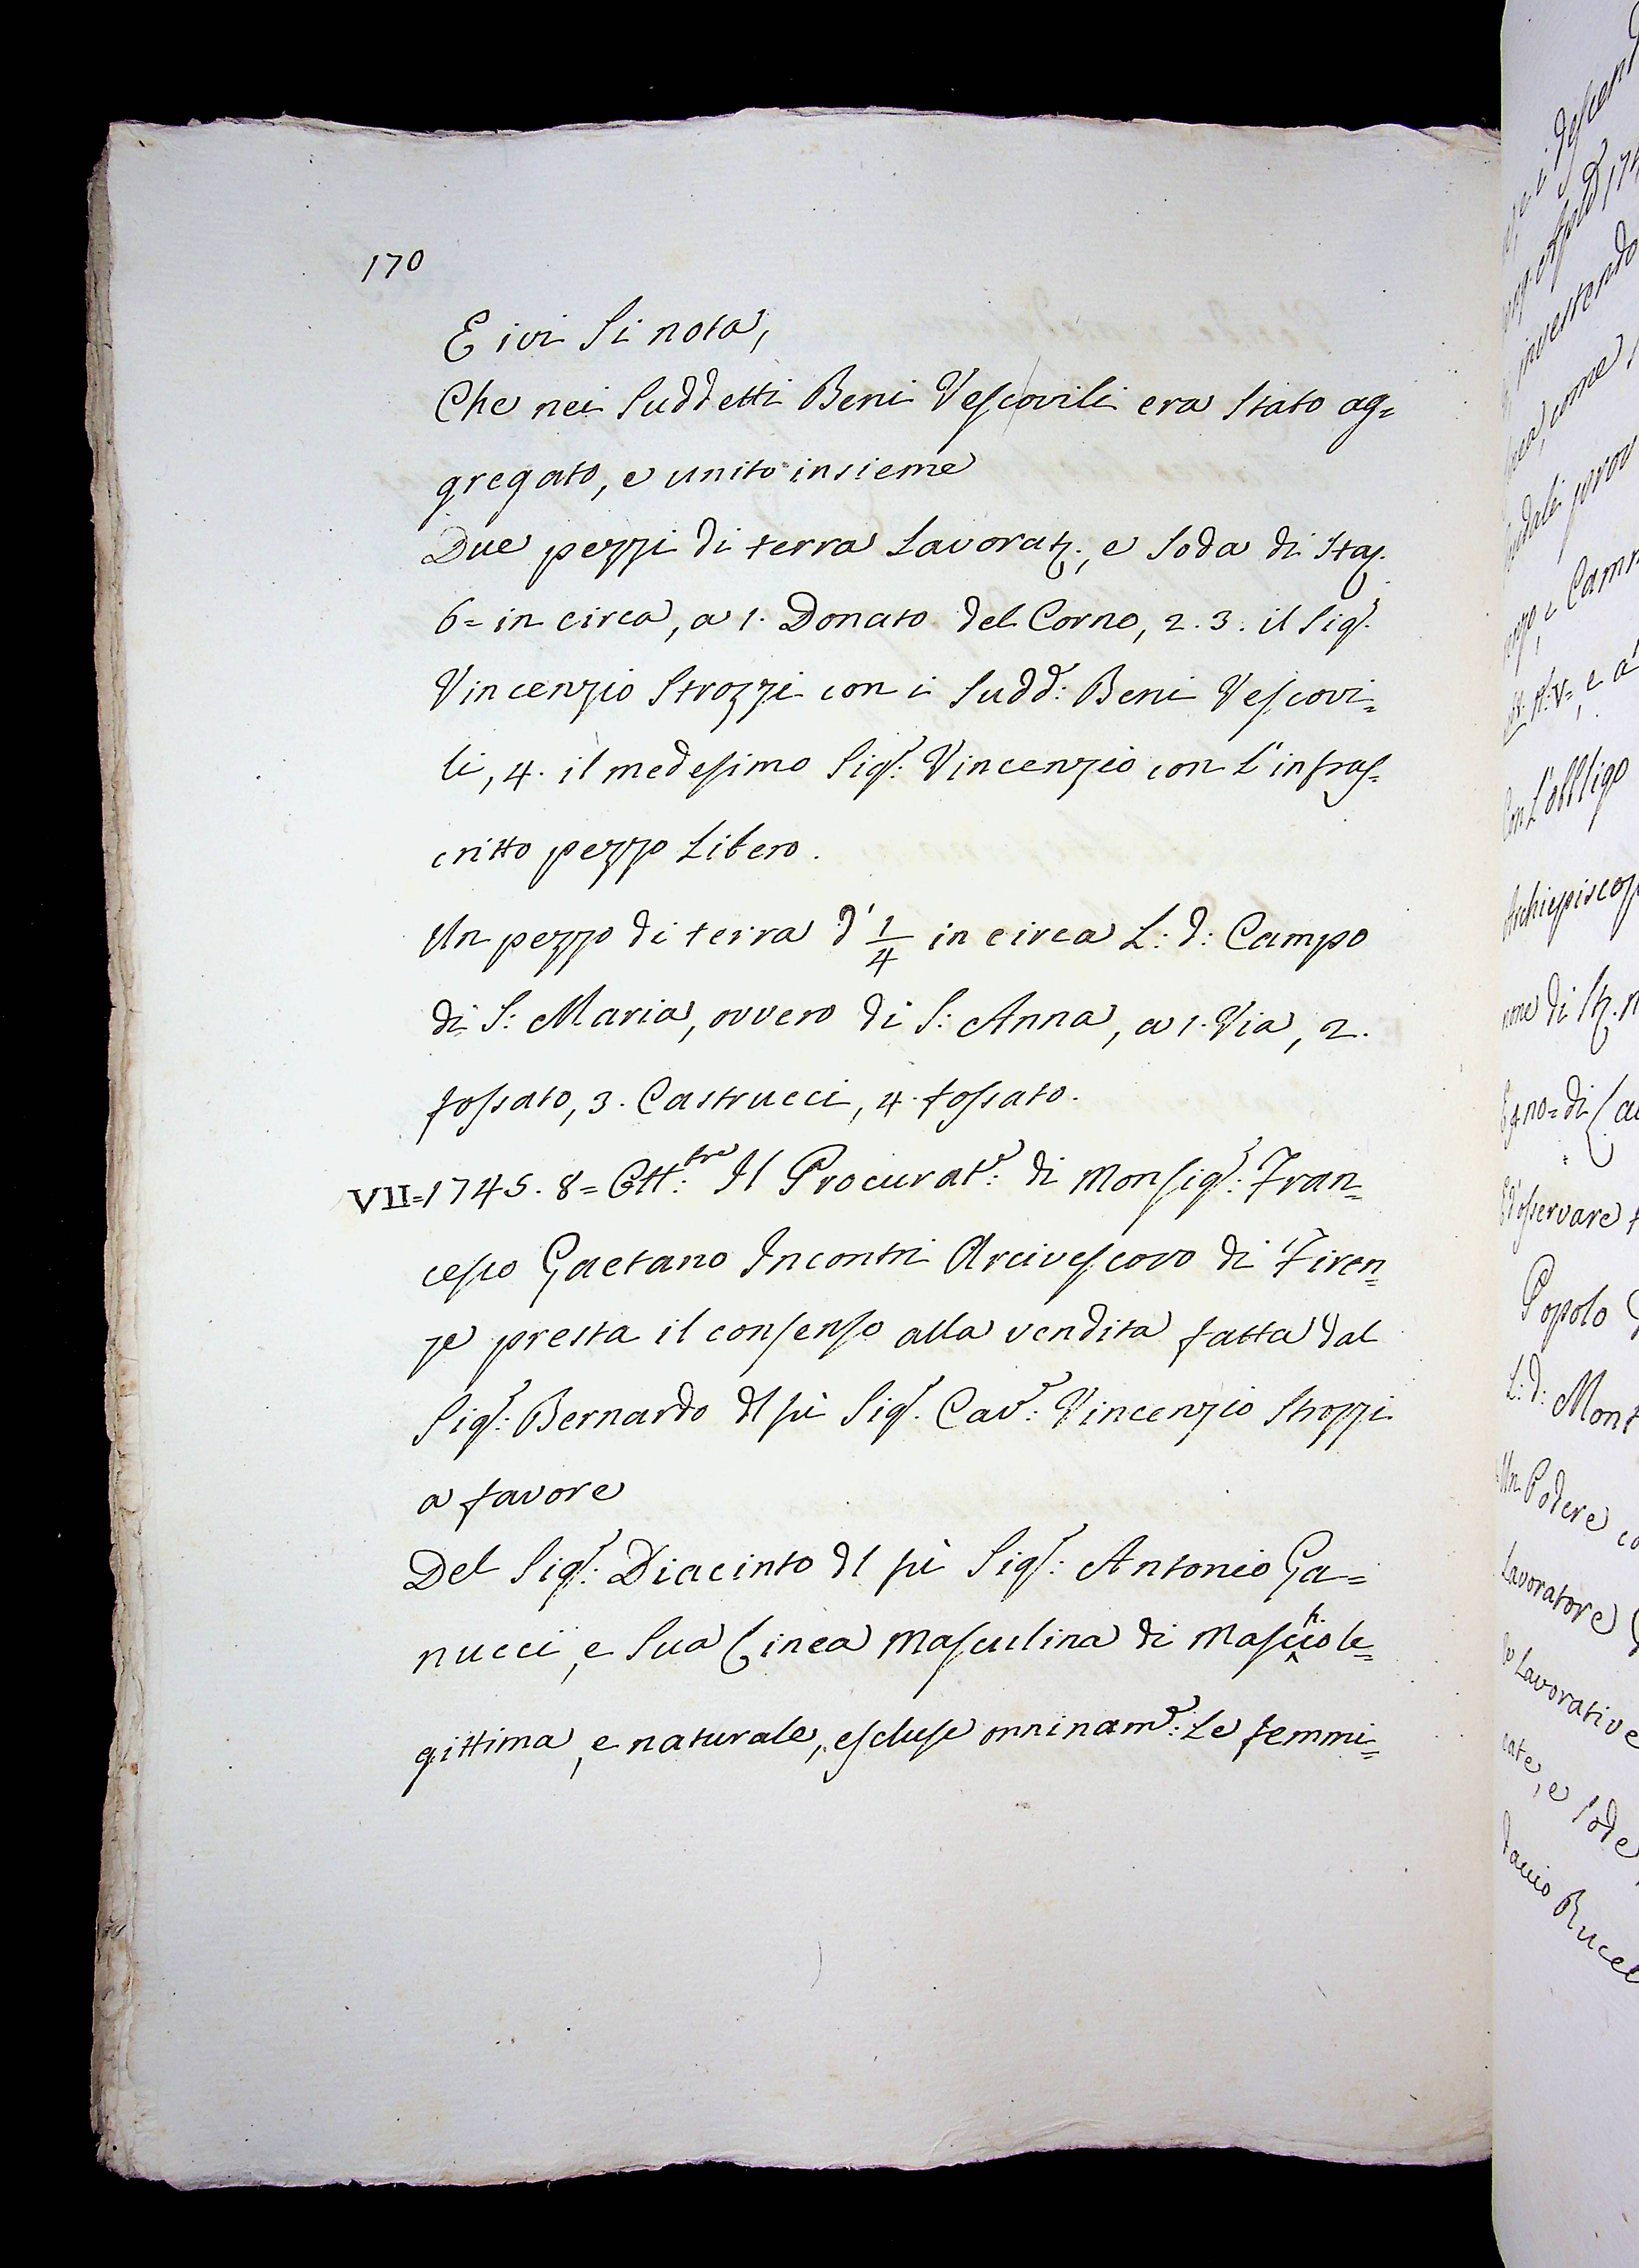 170
E ivi Si nota,
Che nei Suddetti Beni Vescovili era Stato ag=
gregato, e unito insieme
Due pezzi di terra Lavorat., e Soda di Sta.
6= in circa, a 1. Donato del Corno, 2. 3. il Sig.r
Vincenzio Strozzi con i Sudd.: Beni Vescovi=
li, 4. il medesimo Sig.r: Vincenzio con L'infras=
critto pezzo Libero.
Un pezzo di terra d' 1/4 in circa L: d: Campo
di S: Maria, ovvero di S: Anna, a 1. Via, 2.
fossato, 3. Castrucci, 4. fossato.
VII=1745. 8= Ott:bre Il Procurat.e: di Monsig.r: Fran=
cesco Gaetano Incontri Arcivescovo di Firen=
ze presta il consenso alla vendita fatta dal
Sig.r: Bernardo dl fù Sig.r Cav.e: Vincenzio Strozzi
a favore
Del Sig.r: Diacinto dl fù Sig.r: Antonio Ga=
nucci, e Sua Linea Masculina di Maschio le=
gittima, e naturale, escluse onninam.e: Le femmi=
investendo
come
Con L'obbligo
none di
osservare
Popolo
L: d: Mont
Un Podere co
Lavoratore
Lavorative
cate, e Sode
Rucel